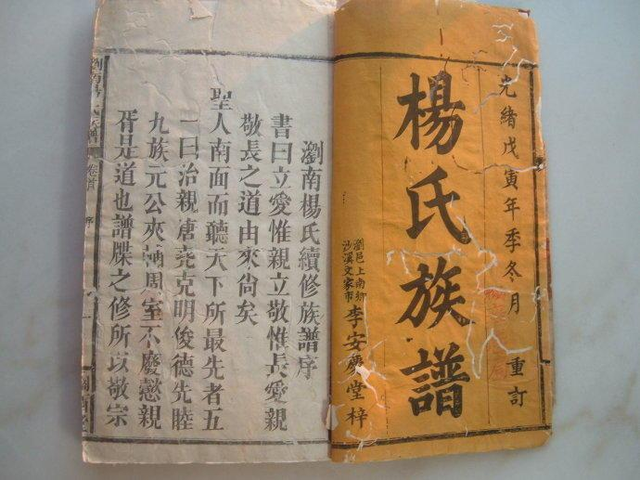 光緒戊寅年季冬月 重訂
楊氏族譜
瀏邑上南鄉
沙溪文家市
李安慶堂梓
瀏南楊氏續修族譜序
書曰立愛惟親立敬惟長愛親
敬長之道由來尙矣
聖人南面而聽天下所最先者五
一曰治親唐堯克明俊德先睦
九族元公夾輔周室不廢懿親
胥是道也譜牒之修所以敬宗
卷首 序